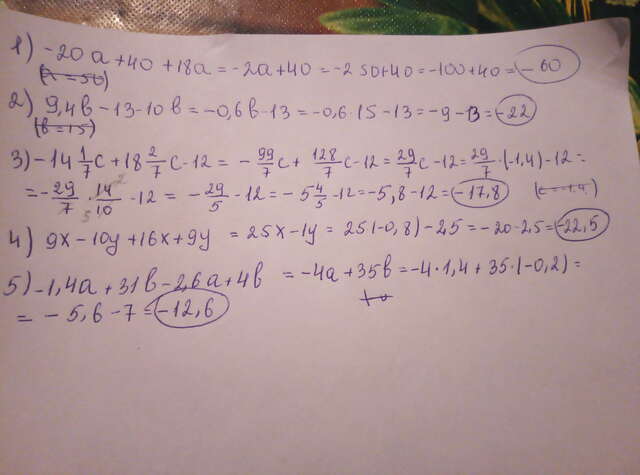 1) -20a+40+18a=-2a+40=-2·50+40=-100+40=-60
(a=50)
2) 9,4b-13-10b=-0,6b-13=-0,6·15-13=-9-13=-22
(b=15)
3) -14 1/7 c+18 2/7 c-12=-99/7 c+128/7 c-12=29/7 c-12=29/7·(-1,4)-12=
=-29/7·14/10-12=-29/5-12=-5 4/5-12=-5,8-12=-17,8 (c=-1,4)
4) 9x-10y+16x+9y=25x-1y=25(-0,8)-2,5=-20-2,5=-22,5
5) -1,4a+31b-2,6a+4b=-4a+35b=-4·1,4+35·(-0,2)=
=-5,6-7=-12,6